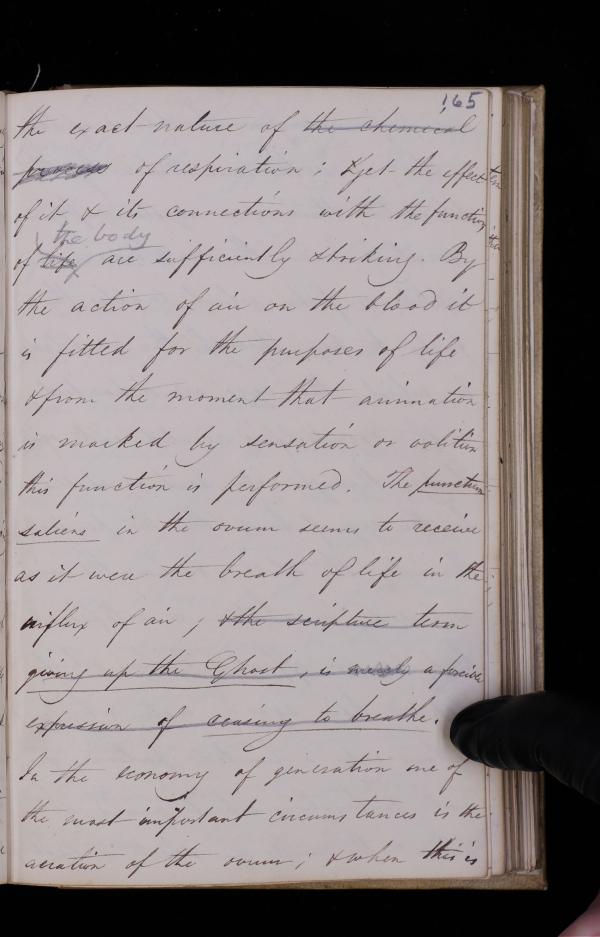 165
the exact nature of the chemical
process of respiration; & yet the effect
of it & its connections with the function
the body
of life are sufficiently striking. By
the action of air on the blood it
is fitted for the purposes of life
& from the moment that animation
is marked by sensation or volition
this function is performed. The punctum
saliens in the ovum seems to receive
as it were the breath of life in the
influx of air; & the scripture term
giving up the Ghost, is merely a forcible
expression of ceasing to breathe.
In the economy of generation one of
the most important circumstances is the
aeration of the ovum; & when this is